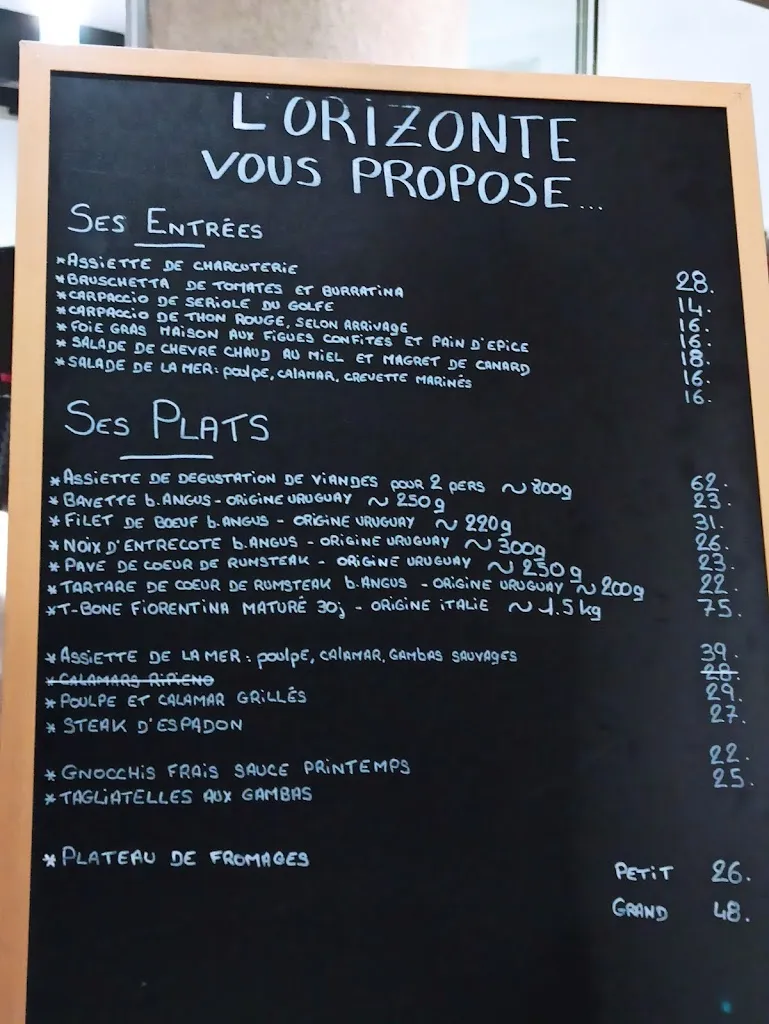 L'ORIZONTE
VOUS PROPOSE...
SES ENTRÉES
*ASSIETTE DE CHARCUTERIE 28.
*BRUSCHETTA DE TOMATES ET BURRATINA 14.
*CARPACCIO DE SERIOLE DU GOLFE 16.
*CARPACCIO DE THON ROUGE, SELON ARRIVAGE 16.
*FOIE GRAS MAISON AUX FIGUES CONFITES ET PAIN D'EPICE 18.
*SALADE DE CHEVRE CHAUD AU MIEL ET MAGRET DE CANARD 16.
*SALADE DE LA MER: poulpe, CALAMAR, CREVETTE MARINÉS 16.
SES PLATS
*ASSIETTE DE DEGUSTATION DE VIANDES POUR 2 PERS ~ 800g 62.
*BAVETTE b.ANGUS - ORIGINE URUGUAY ~ 250g 23.
*FILET DE BOEUF b.ANGUS - ORIGINE URUGUAY ~ 220g 31.
*NOIX D'ENTRECOTE b.ANGUS - ORIGINE URUGUAY ~ 300g 26.
*PAVE DE COEUR DE RUMSTEAK - ORIGINE URUGUAY ~ 250g 23.
*TARTARE DE COEUR DE RUMSTEAK b.ANGUS - ORIGINE URUGUAY ~ 200g 22.
*T-BONE FIORENTINA MATURÉ 30j - ORIGINE ITALIE ~ 1.5kg 75.
*ASSIETTE DE LA MER: poulpe, CALAMAR, GAMBAS SAUVAGES 39.
*CALAMARS RIPIENO 28.
*POULPE ET CALAMAR GRILLÉS 29.
*STEAK D'ESPADON 27.
*GNOCCHIS FRAIS SAUCE PRINTEMPS 22.
*TAGLIATELLES AUX GAMBAS 25.
*PLATEAU DE FROMAGES PETIT 26.
GRAND 48.